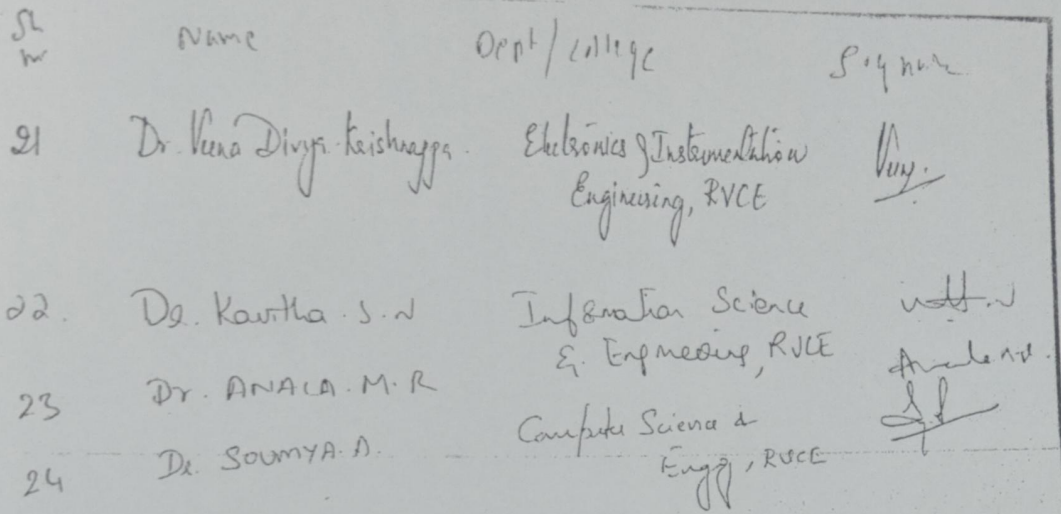 Sl Name Dept/College Signature
no
21 Dr. Veena Divya Krishnappa. Electronics & Instrumentation
Engineering, RVCE
22. Dr. Kavitha. S. N Information Science
& Engineering, RVCE
23 Dr. ANALA. M. R
Computer Science &
24 Dr. SOUMYA. A. Engg, RVCE